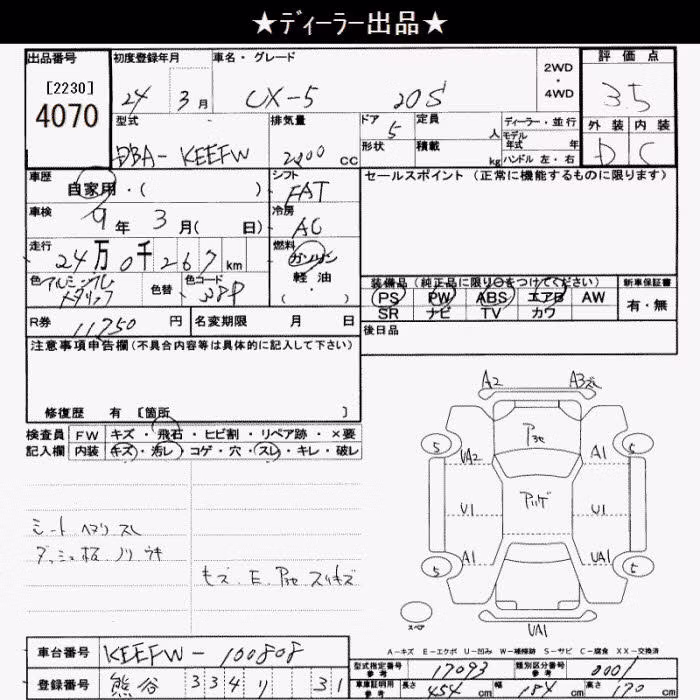 ★ディーラー出品★
出品番号 初度登録年月 車名・グレード 2WD・4WD 評価点
[2230]
4070
24年 3月 CX-5 20S 3.5
型式 排気量 ドア 定員 人 ディーラー・並行 外装 内装
DBA-KEEFW 2000 CC 5 形状 積載 kg モデル年式 年 ハンドル 左・右 D C
車歴 自家用・( ) シフト FAT セールスポイント(正常に機能するものに限ります)
車検 9年 3月( 日) 冷房 AC
走行 24万0千267km 燃料 ガソリン
軽油
( )
色 アルミニウムメタリック 色替 色コード 38P
装備品(純正品に限り○をつけてください) 新車保証書
PS PW ABS エアB AW 有・無
SR ナビ TV カワ
R券 11750円 名変期限 月 日 後日品
注意事項申告欄(不具合内容等は具体的に記入して下さい)
修復歴 有 [箇所 ]
検査員 FW キズ・飛石・ヒビ割・リペア跡・×要
記入欄 内装 キズ・汚レ・コゲ・穴・スレ・キレ・破レ
シート ヘタリ スレ
ダッシュ板 ノリ ウキ
A2 A3
5 5
UA2 A1
U1 U1
A1 UA1
5 5
スペア
UA1
A-キズ E-エクボ U-凹み W-補修跡 S-サビ C-腐食 XX-交換済
車台番号 KEEFW-100808
登録番号 熊谷 334 リ 31
型式指定番号 参考 17093 類別区分番号 参考 0001
車庫証明用 参考 長さ 454cm 幅 184cm 高さ 170cm